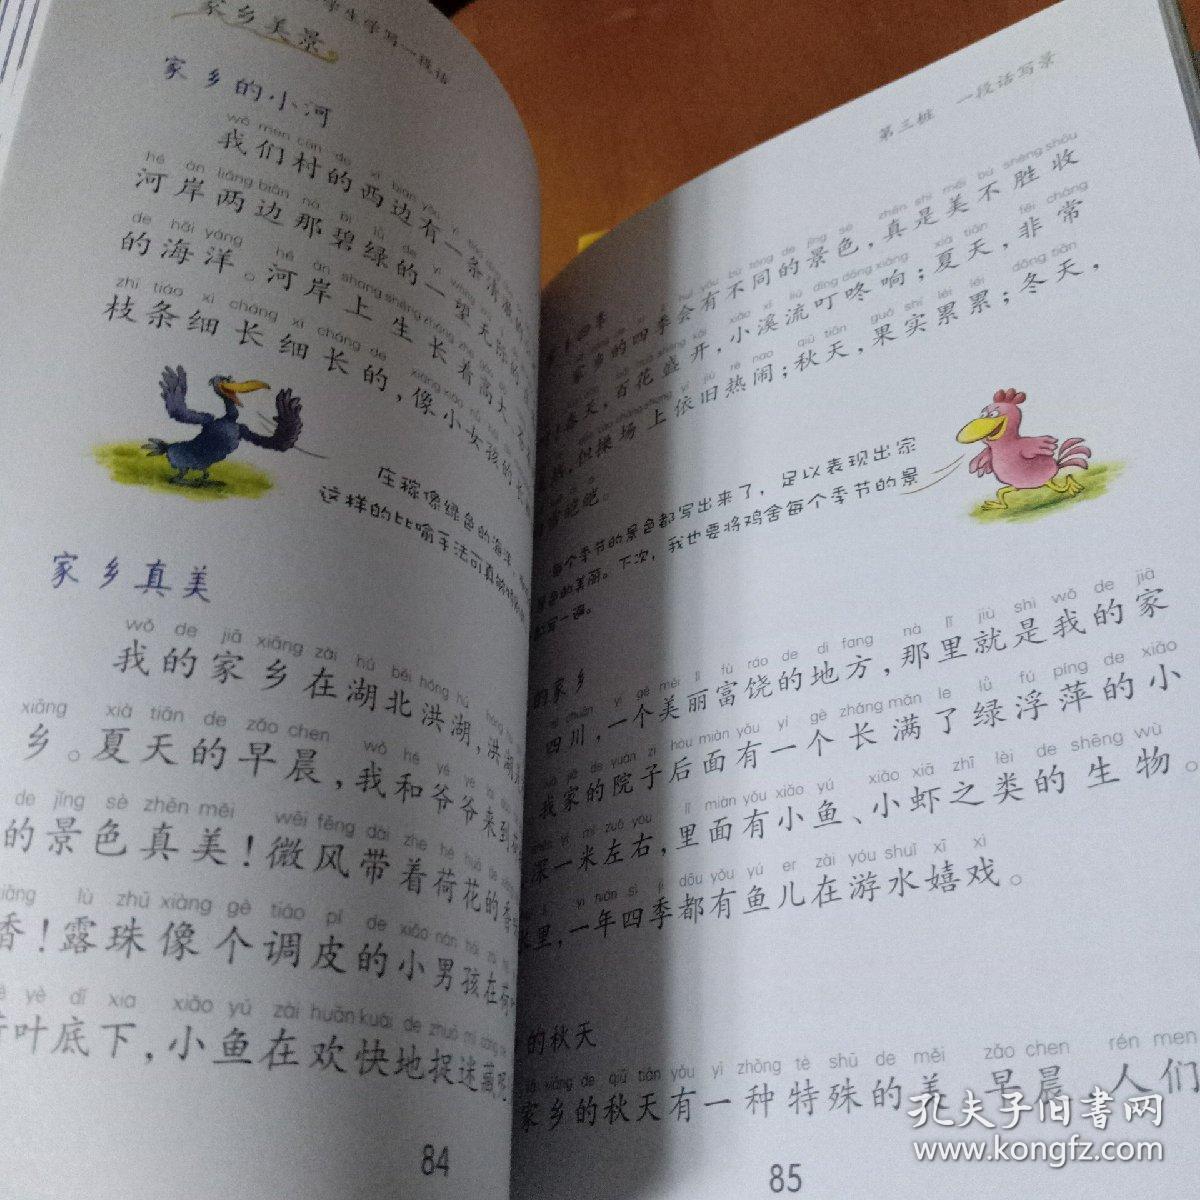 学生学写一段话
家乡美景
家乡的小河
wǒ men cūn de xī biān yǒu
我们村的西边有一条清
hé àn liǎng biān nà bì lǜ de yí wàng
河岸两边那碧绿的一望无
de hǎi yáng hé àn shang shēng zhǎng zhe
的海洋。河岸上生长着高大
zhī tiáo xì cháng xì cháng de xiàng xiǎo nǚ
枝条细长细长的,像小女孩的长
庄稼像绿色的海洋
这样的比喻手法可真
家乡真美
wǒ de jiā xiāng zài hú běi hóng hú
我的家乡在湖北洪湖,洪湖
xiāng xià tiān de zǎo chen wǒ hé yé ye
乡。夏天的早晨,我和爷爷来到
de jǐng sè zhēn měi wēi fēng dài zhe hé huā
的景色真美!微风带着荷花的香
lù zhū xiàng gè tiáo pí de xiǎo nán hái
香!露珠像个调皮的小男孩在荷
yè dǐ xia xiǎo yú zài huān kuài de zhuō mí
叶底下,小鱼在欢快地捉迷藏呢
84
第三桩 一段话写景
huì yǒu bù tóng de jǐng sè zhēn shì měi bú shèng shōu
家乡的四季会有不同的景色,真是美不胜收
xiǎo xī liú dīng dōng xiǎng xià tiān fēi cháng
春天,百花盛开,小溪流叮咚响;夏天,非常
cāo chǎng shang yī jiù rè nao qiū tiān guǒ shí léi léi dōng tiān
但操场上依旧热闹;秋天,果实累累;冬天,
皑皑。
每个季节的景色都写出来了,足以表现出家
景色的美丽。下次,我也要将鸡舍每个季节的景
都写一遍。
的家乡
sì chuān yí gè měi lì fù ráo de dì fang nà lǐ jiù shì wǒ de jiā
四川,一个美丽富饶的地方,那里就是我的家
wǒ jiā de yuàn zi hòu miàn yǒu yí gè zhǎng mǎn le lǜ fú píng de xiǎo
我家的院子后面有一个长满了绿浮萍的小
yì mǐ zuǒ yòu lǐ miàn yǒu xiǎo yú xiǎo xiā zhī lèi de shēng wù
深一米左右,里面有小鱼、小虾之类的生物。
lǐ yì nián sì jì dōu yǒu yú er zài yóu shuǐ xī xì
里,一年四季都有鱼儿在游水嬉戏。
的秋天
jiā xiāng de qiū tiān yǒu yì zhǒng tè shū de měi zǎo chen rén men
家乡的秋天有一种特殊的美 早晨,人们
85
孔夫子旧书网
www.kongfz.com